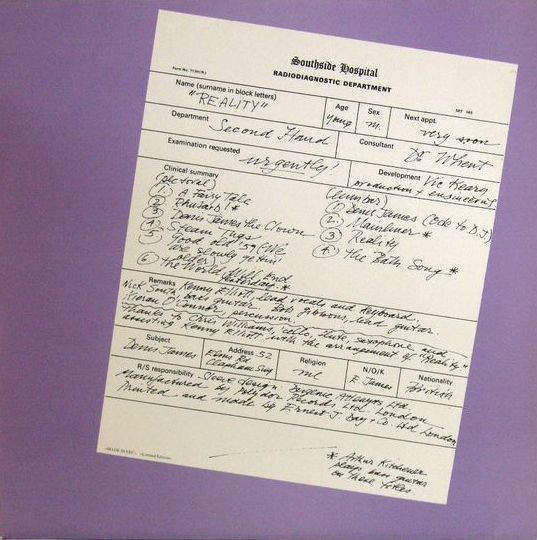 Southside Hospital
RADIODIAGNOSTIC DEPARTMENT
Name (surname in block letters)
"REALITY"
Age
young
Sex
m.
Next appt.
very soon
Department
Second Hand
Consultant
Dr Whent
Examination requested
urgently!
Development
Vic Keary
production & engineering
Clinical summary
(pectoral)
(lumbar)
1. A Fairy Tale
2. Rhubarb! *
3. Denis James the Clown
4. Steam Tugs
5. Good old '59 (We
are slowly gettin'
older)
6. The World Will End
Yesterday *
1 Denis James (Ode to D.J.)
2 Mainliner *
3 Reality
4 The Bath Song *
Remarks
Kenny Elliott, lead vocals and keyboard.
Nick South bass guitar. Bob Gibbons, lead guitar.
Kieran O'Connor percussion
Thanks to Chris Williams, cello, flute, saxophone and
assisting Kenny Elliott with the arrangement of "Reality"
Subject
Denis James
Address 52
Elms Rd
Clapham
Religion
me
N/O/K
E. James
Nationality
British
R/S responsibility
Manufactured by Polydor Records Ltd. London
Printed and made by Ernest J. Day & Co Ltd London
* Arthur Kitchener
plays bass guitar
on these titles